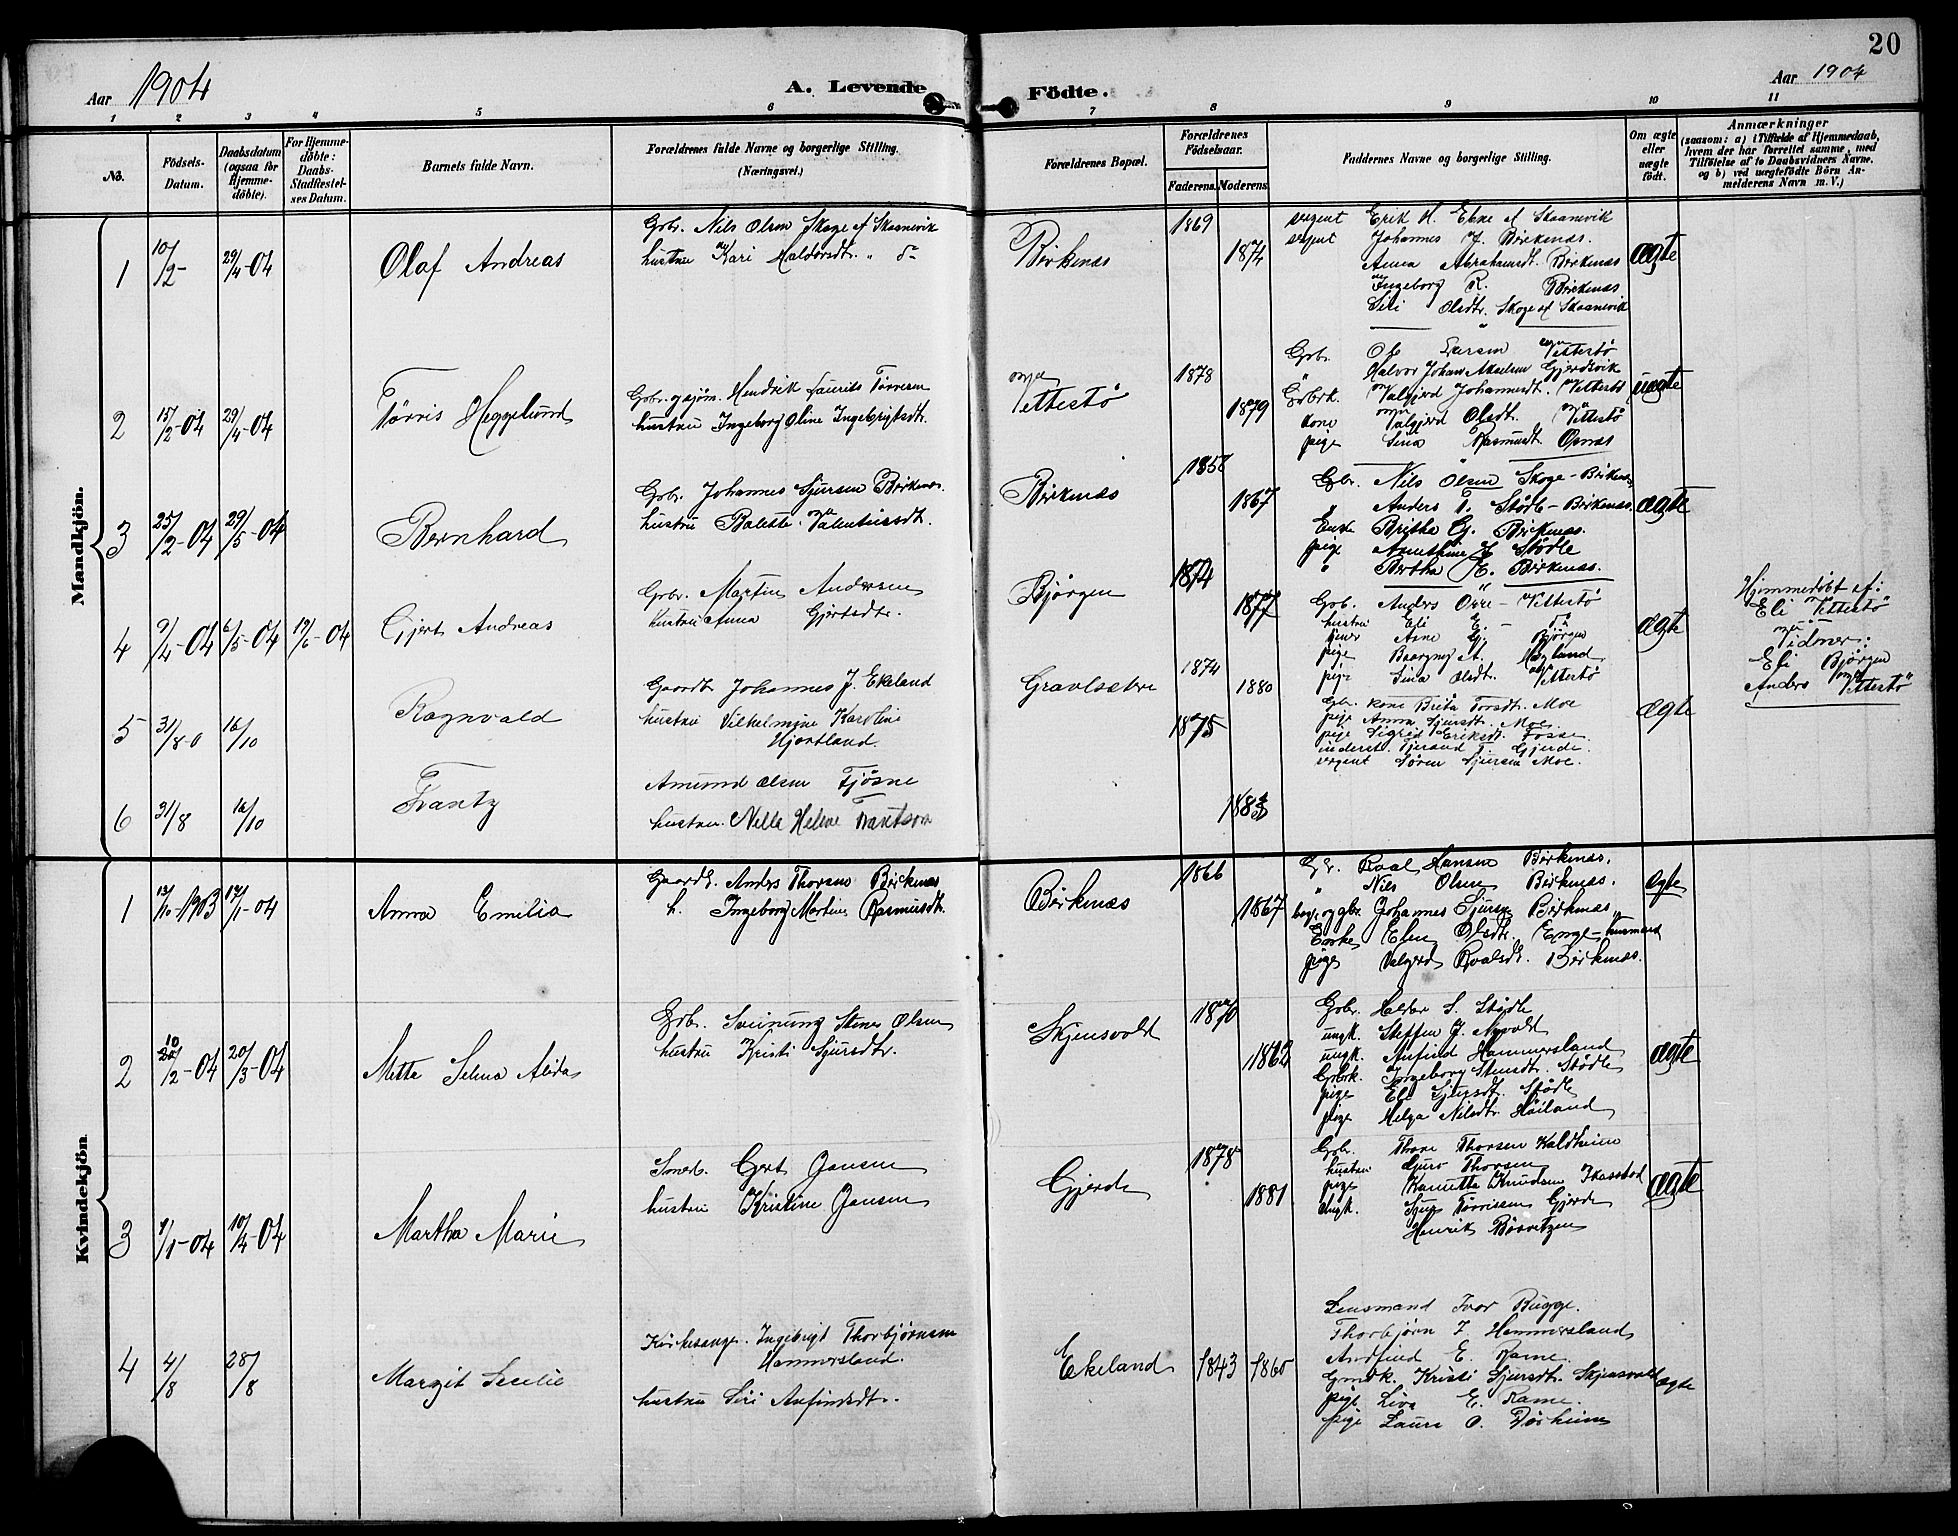 20
Aar 1904
A. Levende Födte.
Aar 1904
1 2 3 4 5 6 7 8 9 10 11
No.
Födsels-Datum.
Daabsdatum (ogsaa for Hjemme-döbte).
For Hjemme-döbte: Daabs-Stadfæstel-ses Datum.
Barnets fulde Navn.
Forældrenes fulde Navne og borgerlige Stilling. (Næringsvei.)
Forældrenes Bopæl.
Forældrenes Födselsaar.
Faderens. Moderens.
Faddernes Navne og borgerlige Stilling.
Om ægte eller uægte födt.
Anmærkninger
(saasom: a) i Tilfælde af Hjemmedaab, hvem der har forrettet samme, med Tilföielse af to Daabsvidners Navne, og b) ved uægtefödte Börn Anmelderens Navn m. V.)
Mandkjön.
1 10/2- 29/4-04 Olaf Andreas
Gbr. Nils Olsen Skoge af Skaanevik
hustru Kari Haldorsdt. " do
Birkenæs 1869 1874
sergent Erik H. Ebne af Skaanevik
sergent Johannes J. Birkenæs.
Anna Abrahamsdt. Birkenæs
Ingeborg R. Birkenæs
Siri Olsdtr. Skoge af Skaanevik
ægte
2 15/2-04 29/4-04 Tørris Heggelund
Gbr. og sjøm. Hendrik Laurits Tørresen
hustru Ingeborg Oline Ingebrigtsdt.
Vettestø 1878 1879
Gbr. Ole Larsen Vettestø
" Halvor Johan Akselsen Gjerdsvik
Gbrk. Valgjerd Johannesdt. Vettestø
kone Valgjerd Olsdt. Vettestø
pige Sina Rasmusdt. Opnæs
uægte
3 25/2-04 29/5-04 Bernhard
Gbr. Johannes Sjursen Birkenæs.
hustru Balette Valentinsdt.
Birkenæs 1858 1867
Gbr. Nils Olsen Skoge-Birkenæs
" Anders T. Stødle-Birkenæs
Enke Britha G. Birkenæs.
pige Anne H. Stødle
" Bertha H. Birkenæs.
ægte
4 9/4-04 6/5-04 19/6-04 Gjert Andreas
Gbr. Martin Andersen
hustru Anna Gjertsdtr.
Bjørgen 1874 1877
Gbr. Anders Orre-Vettestø
hustru Eli E. - do
Asne G. Bjørgen
pige Baargny A. Høyland
pige Sina Olsdt. Vettestø
ægte
Hjemmedøbt af:
Eli Vettestø
Vidner:
Eli Bjørgen
Anders Vettestø
5 31/8-0 16/10 Ragnvald
Gaardb. Johannes J. Ekeland
hustru Vilhelmine Karoline
Hjortland.
Gravlsæter 1874 1880
Gbr. kone Brita Torsdt. Moe
pige Anna Sjursdt. Moe
pige Sigrid Eriksdt. Fosse
inderst. Tjerand T. Gjerde.
sergent Søren Sjursen Moe.
ægte
6 31/8 16/10 Frantz
Amund Olsen Tjøsne
hustru. Nelle Helene Frantsen
1875 1883
Kvindekjön.
1 13/10-1903 17/1-04 Anna Emilia
Gaardb. Anders Thorsen Birkenæs
h. Ingeborg Martine Rasmusdt.
Birkenæs 1866 1867
Gbr. Roal Hansen Birkenæs.
" Nils Olsen Birkenæs.
og gbr. Johannes Sjursen Birkenæs
Enke Elen Olsdtr. Enge- husmand
pige Valgerd Roalsdt. Birkenæs.
ægte
2 10/2-04 20/3-04 Mette Selma Alida
Gbr. Sveinung Stener Olsen
hustru Kristi Sjursdtr.
Skjensvold 1870 1862
Gbr. Haldor S. Stødle
ungk. Steffen J. Nyvold
ungk. Anfind Hammersland
Gbrk. Ingeborg Stensdt. Stødle
pige Eli Sjursdt. Stødle
pige Helga Nilsdtr. Høiland
ægte
3 7/1-04 10/4-04 Martha Marie
Smed. Gert Jansen
hustru Kristine Jansen
Gjerde 1878 1881
Gbr. Thore Thorsen Kaldheim
hustru Guro Thorsen
pige Kanutta Knudsen
ungk. Sjur Tørrissen Gjerde
Henrik
ægte
4 4/8 28/8 Margit Secelie
Kirkesanger. Ingebrigt Thorbjørnsen
Hammersland.
hustru Siri Anfindsdt.
Ekeland 1843 1865
Lensmand Ivar Bugge.
Thorbjørn I. Hammersland
Andfind E. Rame.
Gmdk. Kristi Sjursdt. Skjensvold
pige Liva E. Rame.
pige Laura O. Dørheim
ægte